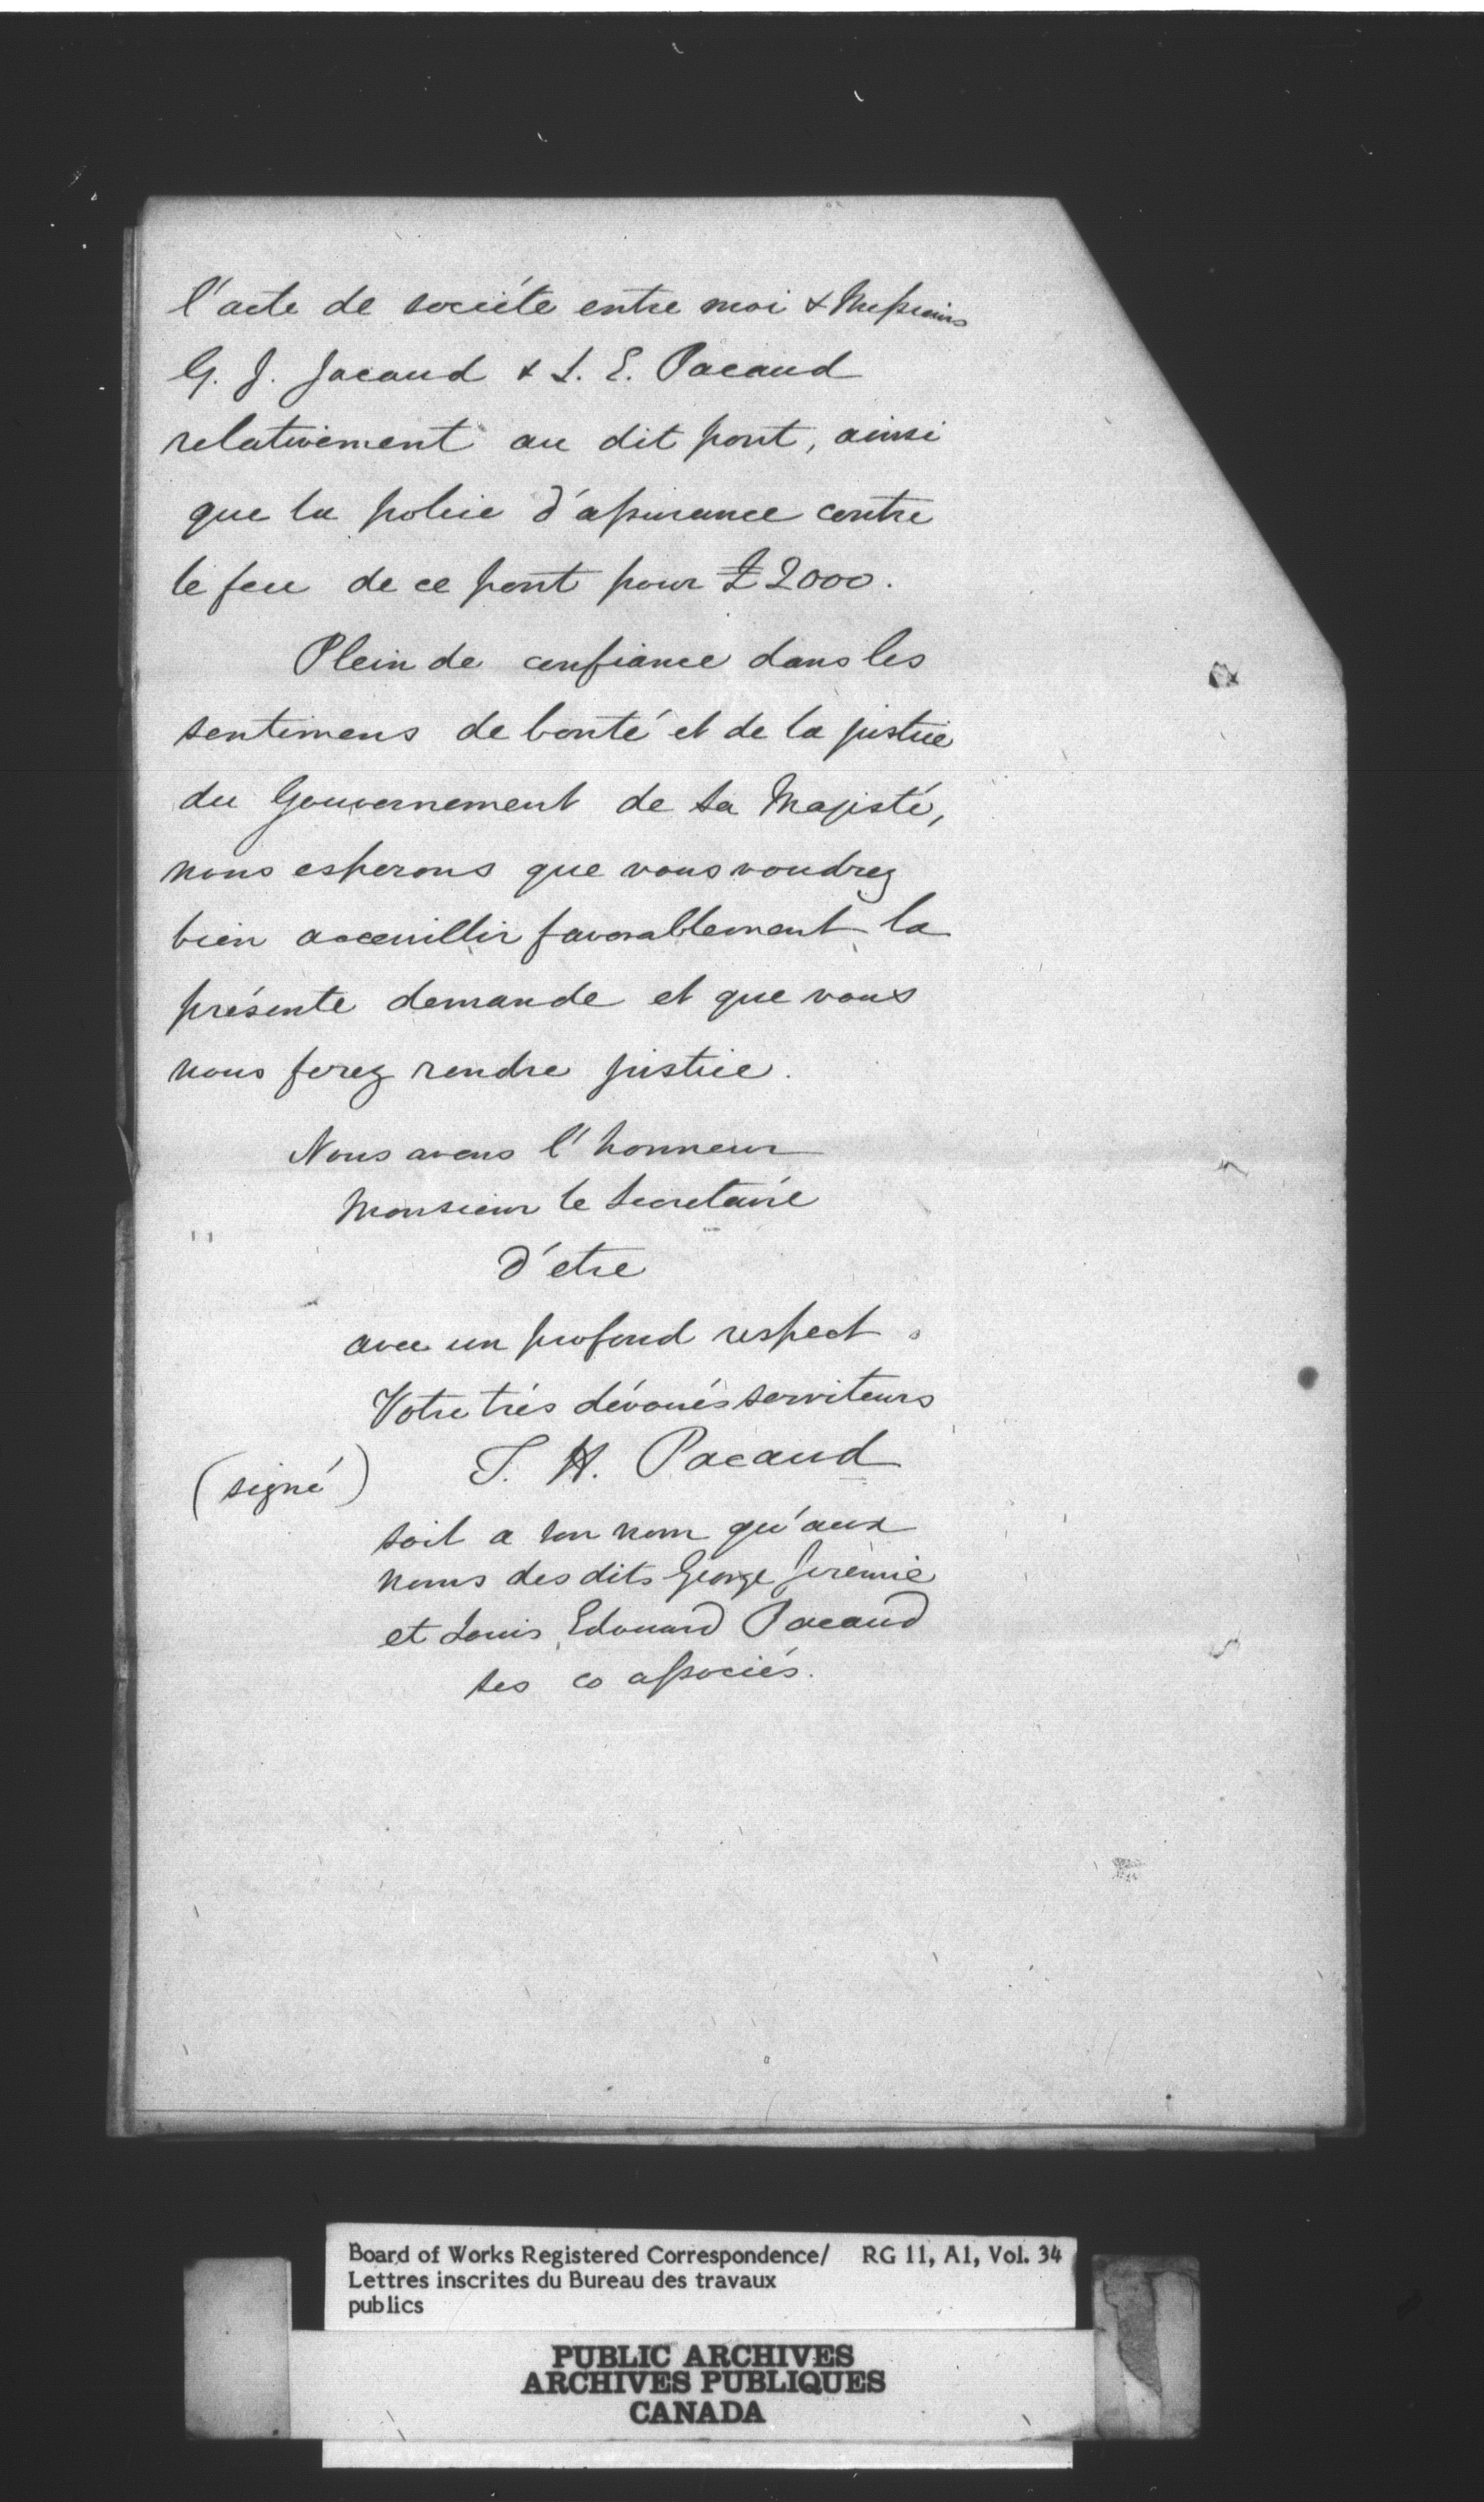 l'acte de société entre moi & Messieurs
G. J. Jacaud & L. E. Pacaud
relativement au dit pont, ainsi
que la police d'assurance contre
le feu de ce pont pour £2000.
Plein de confiance dans les
sentimens de bonté et de la justice
du Gouvernement de Sa Majesté,
nous esperons que vous voudrez
bien acceuillir favorablement la
présente demande et que vous
nous ferez rendre justice.
Nous avons l'honneur
Monsieur le Secretaire
d'etre
avec un profond respect.
Votre trés dévoués serviteurs
(signé) T. H. Pacaud
soit a son nom qu'aux
noms des dits George Jeremie
et Louis Edouard Pacaud
ses co associés.
Board of Works Registered Correspondence/ RG 11, A1, Vol. 34
Lettres inscrites du Bureau des travaux
publics
PUBLIC ARCHIVES
ARCHIVES PUBLIQUES
CANADA